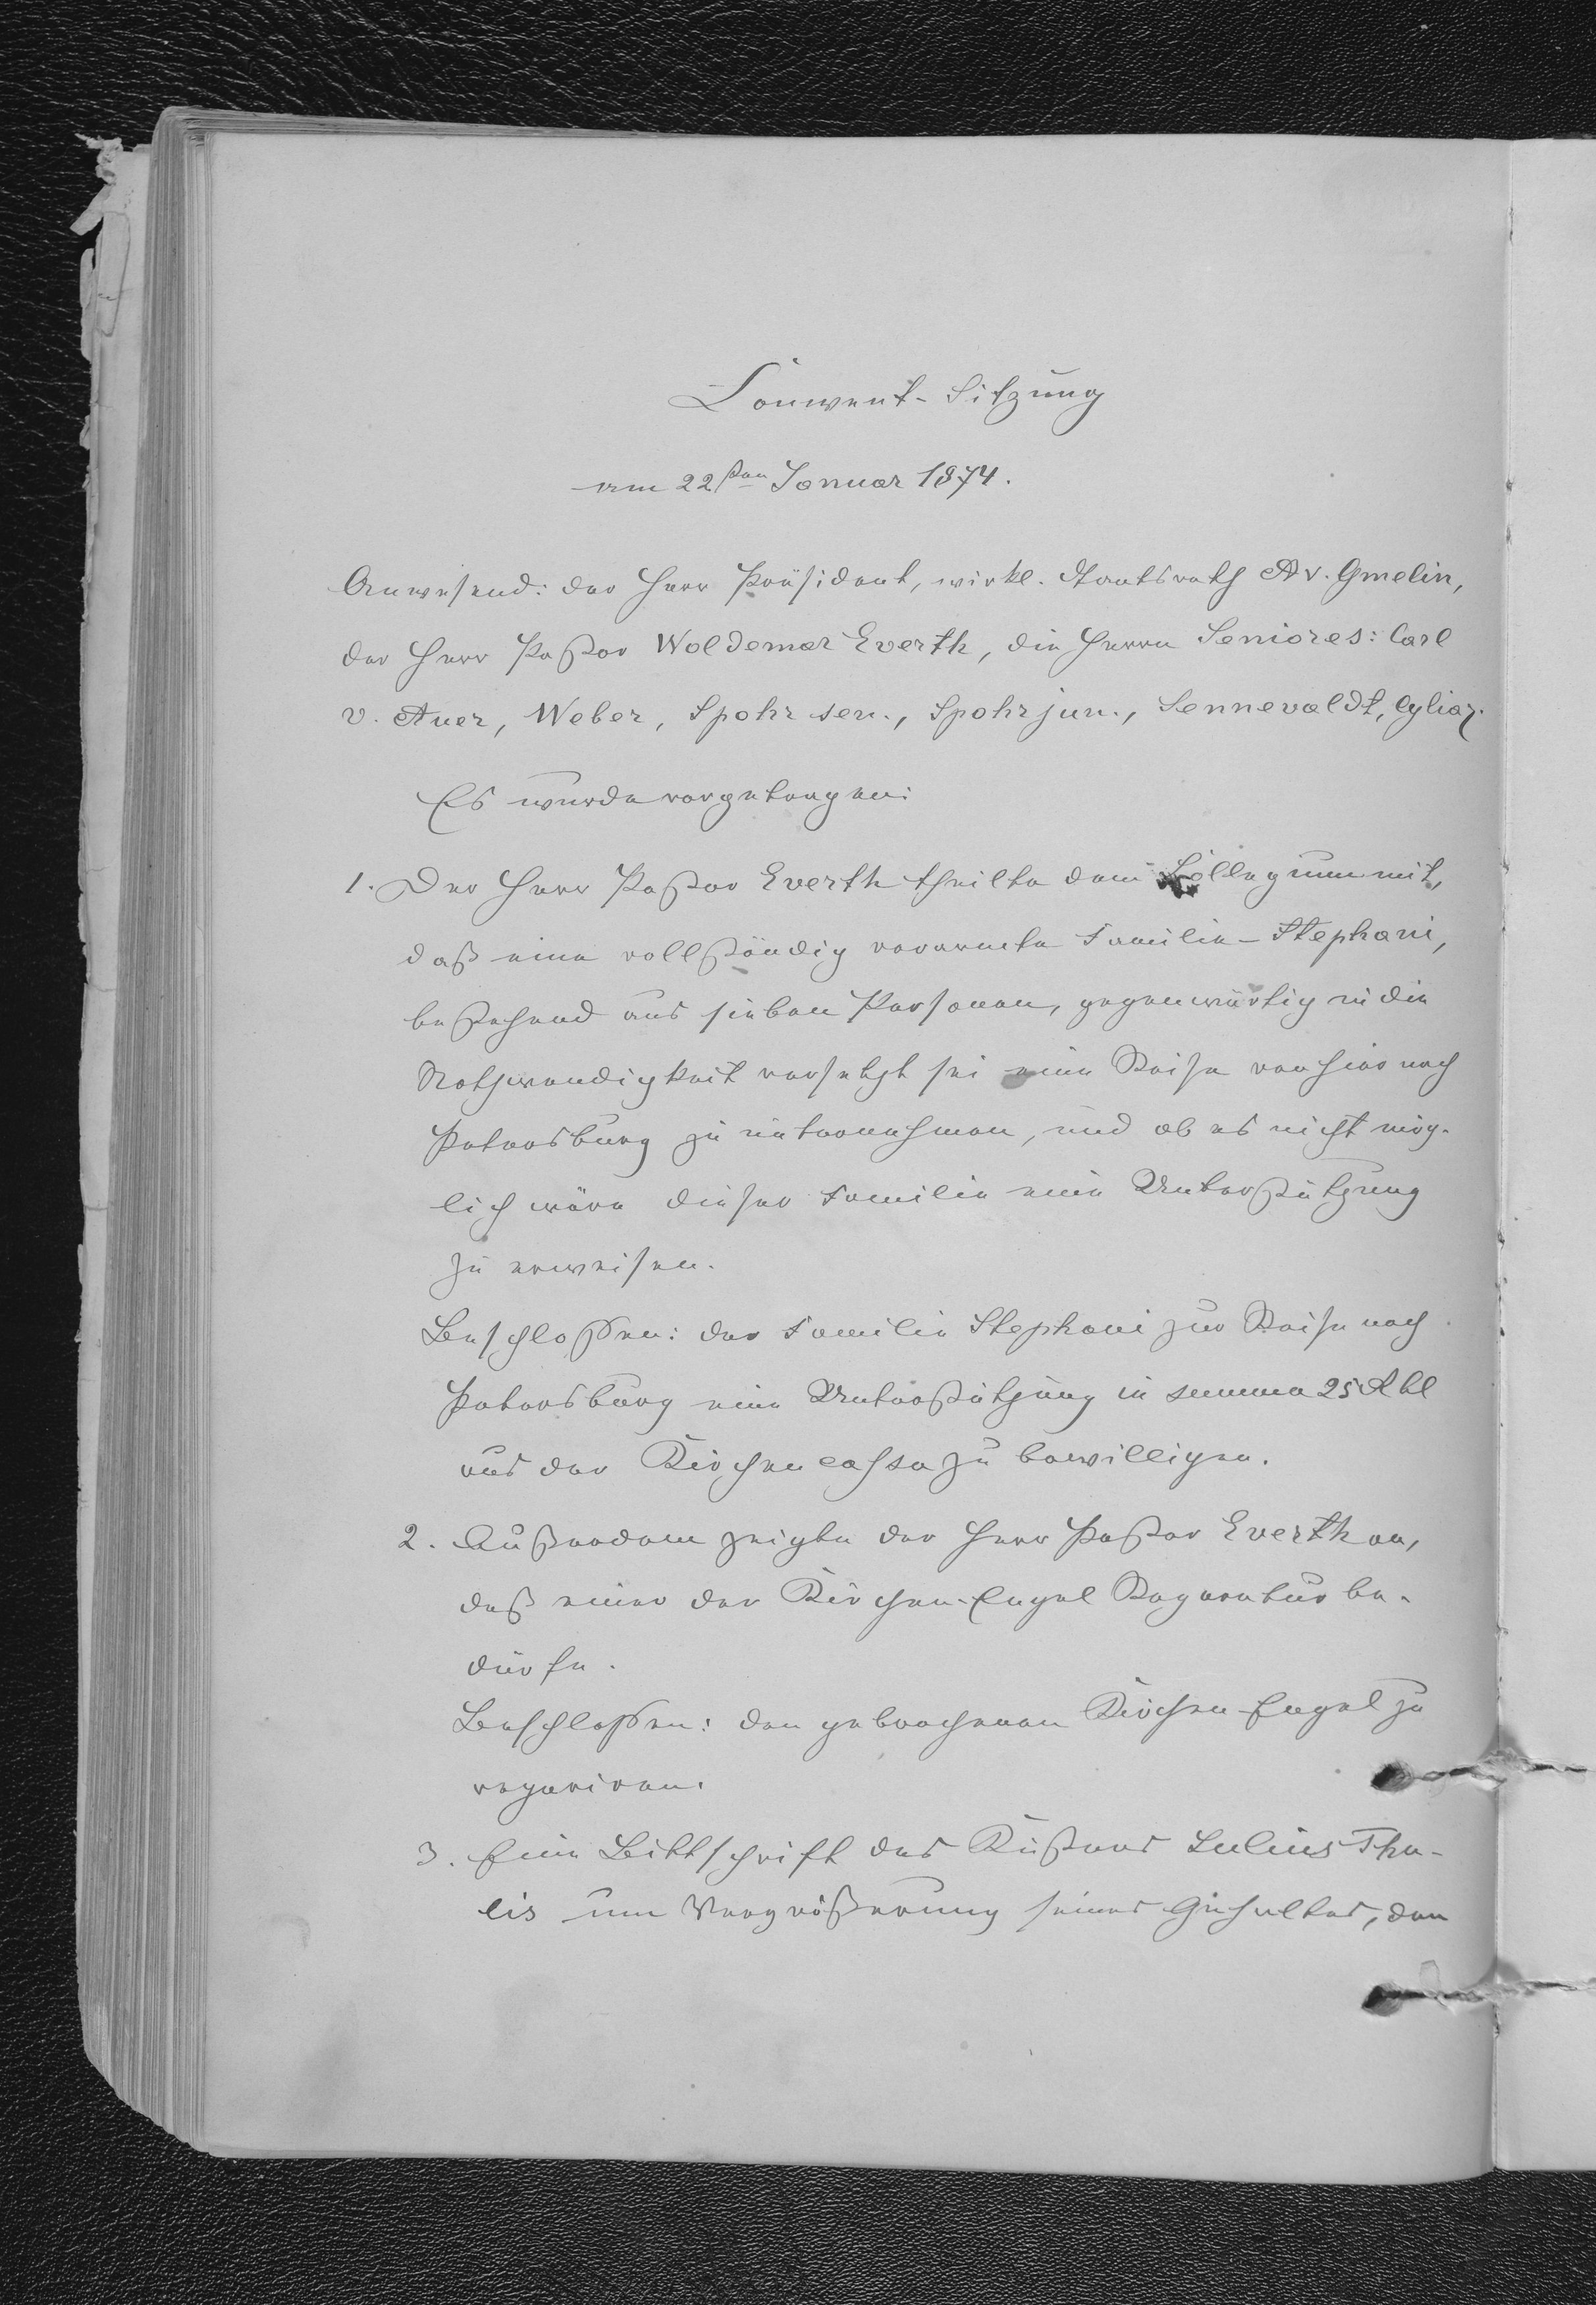 Convent-Sitzung
am 22sten Januar 1874.
Anwesend: der Herr Präsident, wirkl. Staatsrath A v. Gmelin,
der Herr Pastor Woldemar Everth, die Herrn Seniores: Carl
v. Auer, Weber, Spohr sen., Spohr jun., Sennevaldt, Cyliax.
Es wurde vorgetragen:
1. Der Herr Pastor Everth theilte dem Collegium mit,
daß eine vollständig verarmte Familie Stephani,
bestehend aus sieben Personen, gegenwärtig in die
Nothwendigkeit versetzt sei eine Reise von hier nach
Petersburg zu unternehmen, und ob es nicht mög-
lich wäre dieser Familie eine Unterstützung
zu erweisen.
Beschloßen: der Familie Stephani zur Reise nach
Petersburg eine Unterstützung in summa 25 Rbl
aus der Kirchencassa zu bewilligen.
2. Außerdem zeigte der Herr Pastor Everth an,
daß einer der Kirchen-Engel Reparatur be-
dürfe.
Beschloßen: den gebrochenen Kirchen-Engel zu
repariren.
3. Eine Bittschrift des Küsters Julius Tha-
lis um Vergrößerung seines Gehaltes, den